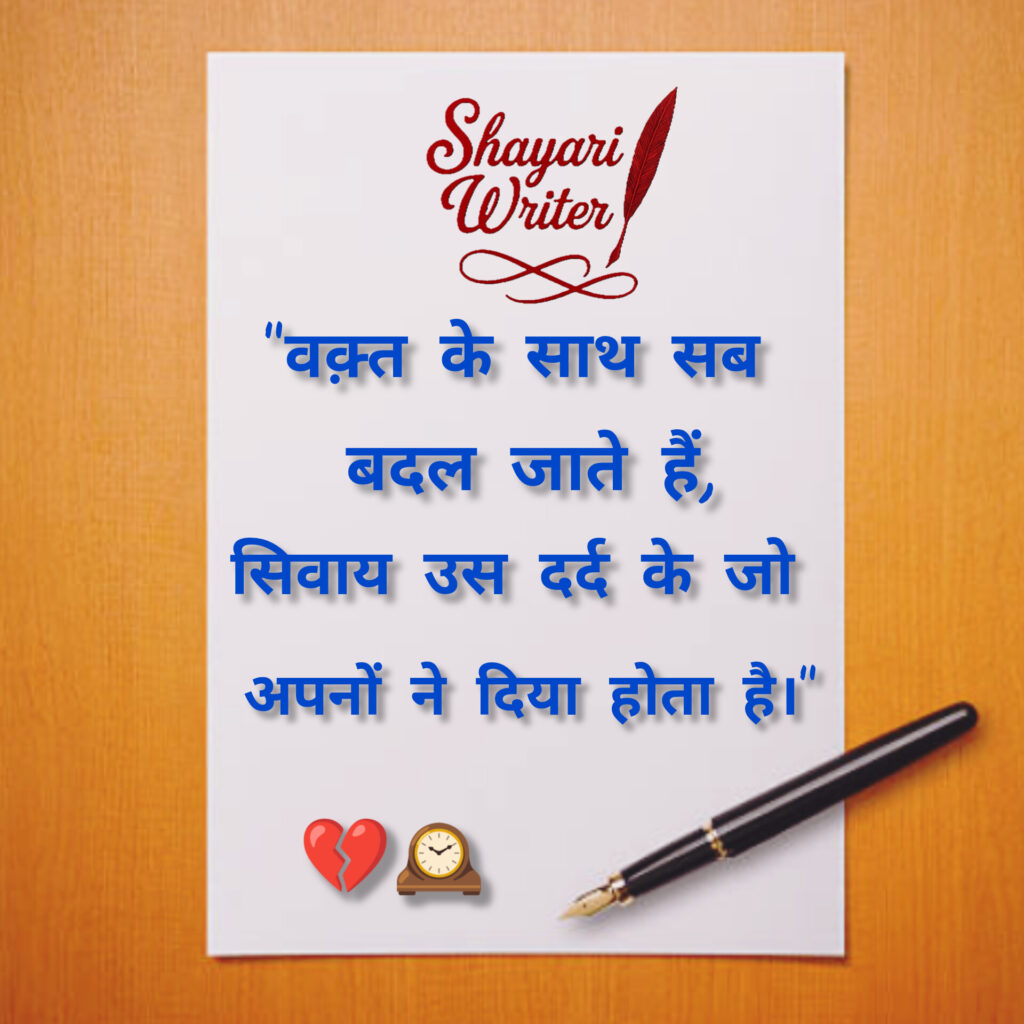 Shayari
Writer
"वक़्त के साथ सब
बदल जाते हैं,
सिवाय उस दर्द के जो
अपनों ने दिया होता है।"